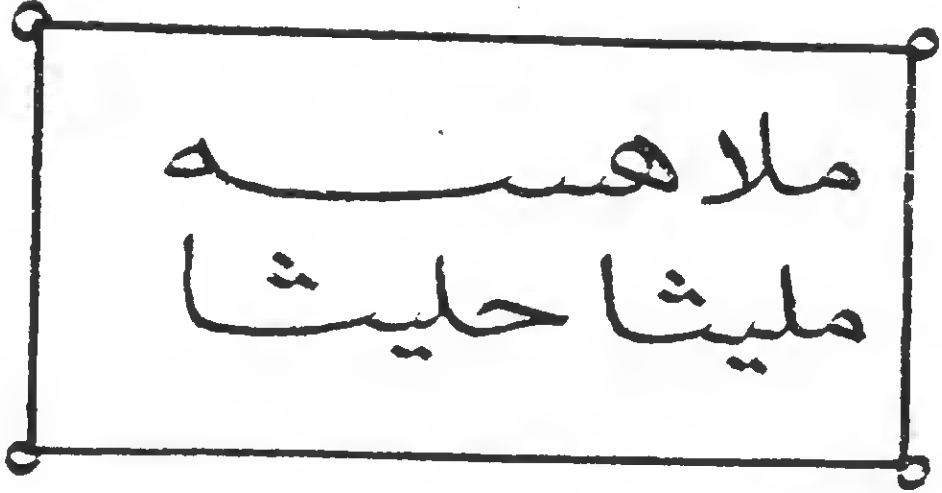 ملا هسه
مليثا حليثا